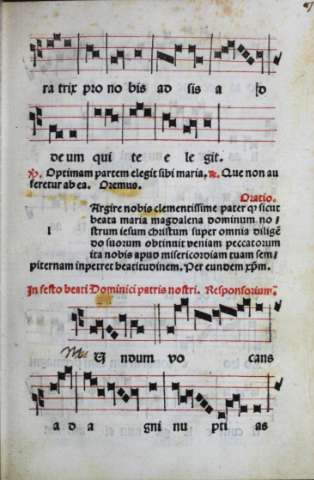 ra trix pro no bis ad sis a d
de um qui te e le git.
℣. Optimam partem elegit sibi maria. ℟. Que non au
feretur ab ea. Oremus.
Oratio.
lArgire nobis clementissime pater ꝙ sicut
beata maria magdalena dominum no/
strum iesum christum super omnia diligẽ
do suorum obtinuit veniam peccatorum
ita nobis apud misericordiam tuam sem/
piternam inpetret beatitudinem. Per eundem xp̃m.
In festo beati Dominici patris nostri. Responsorium.
Mu N dum vo cans
a d a gni nu pti as